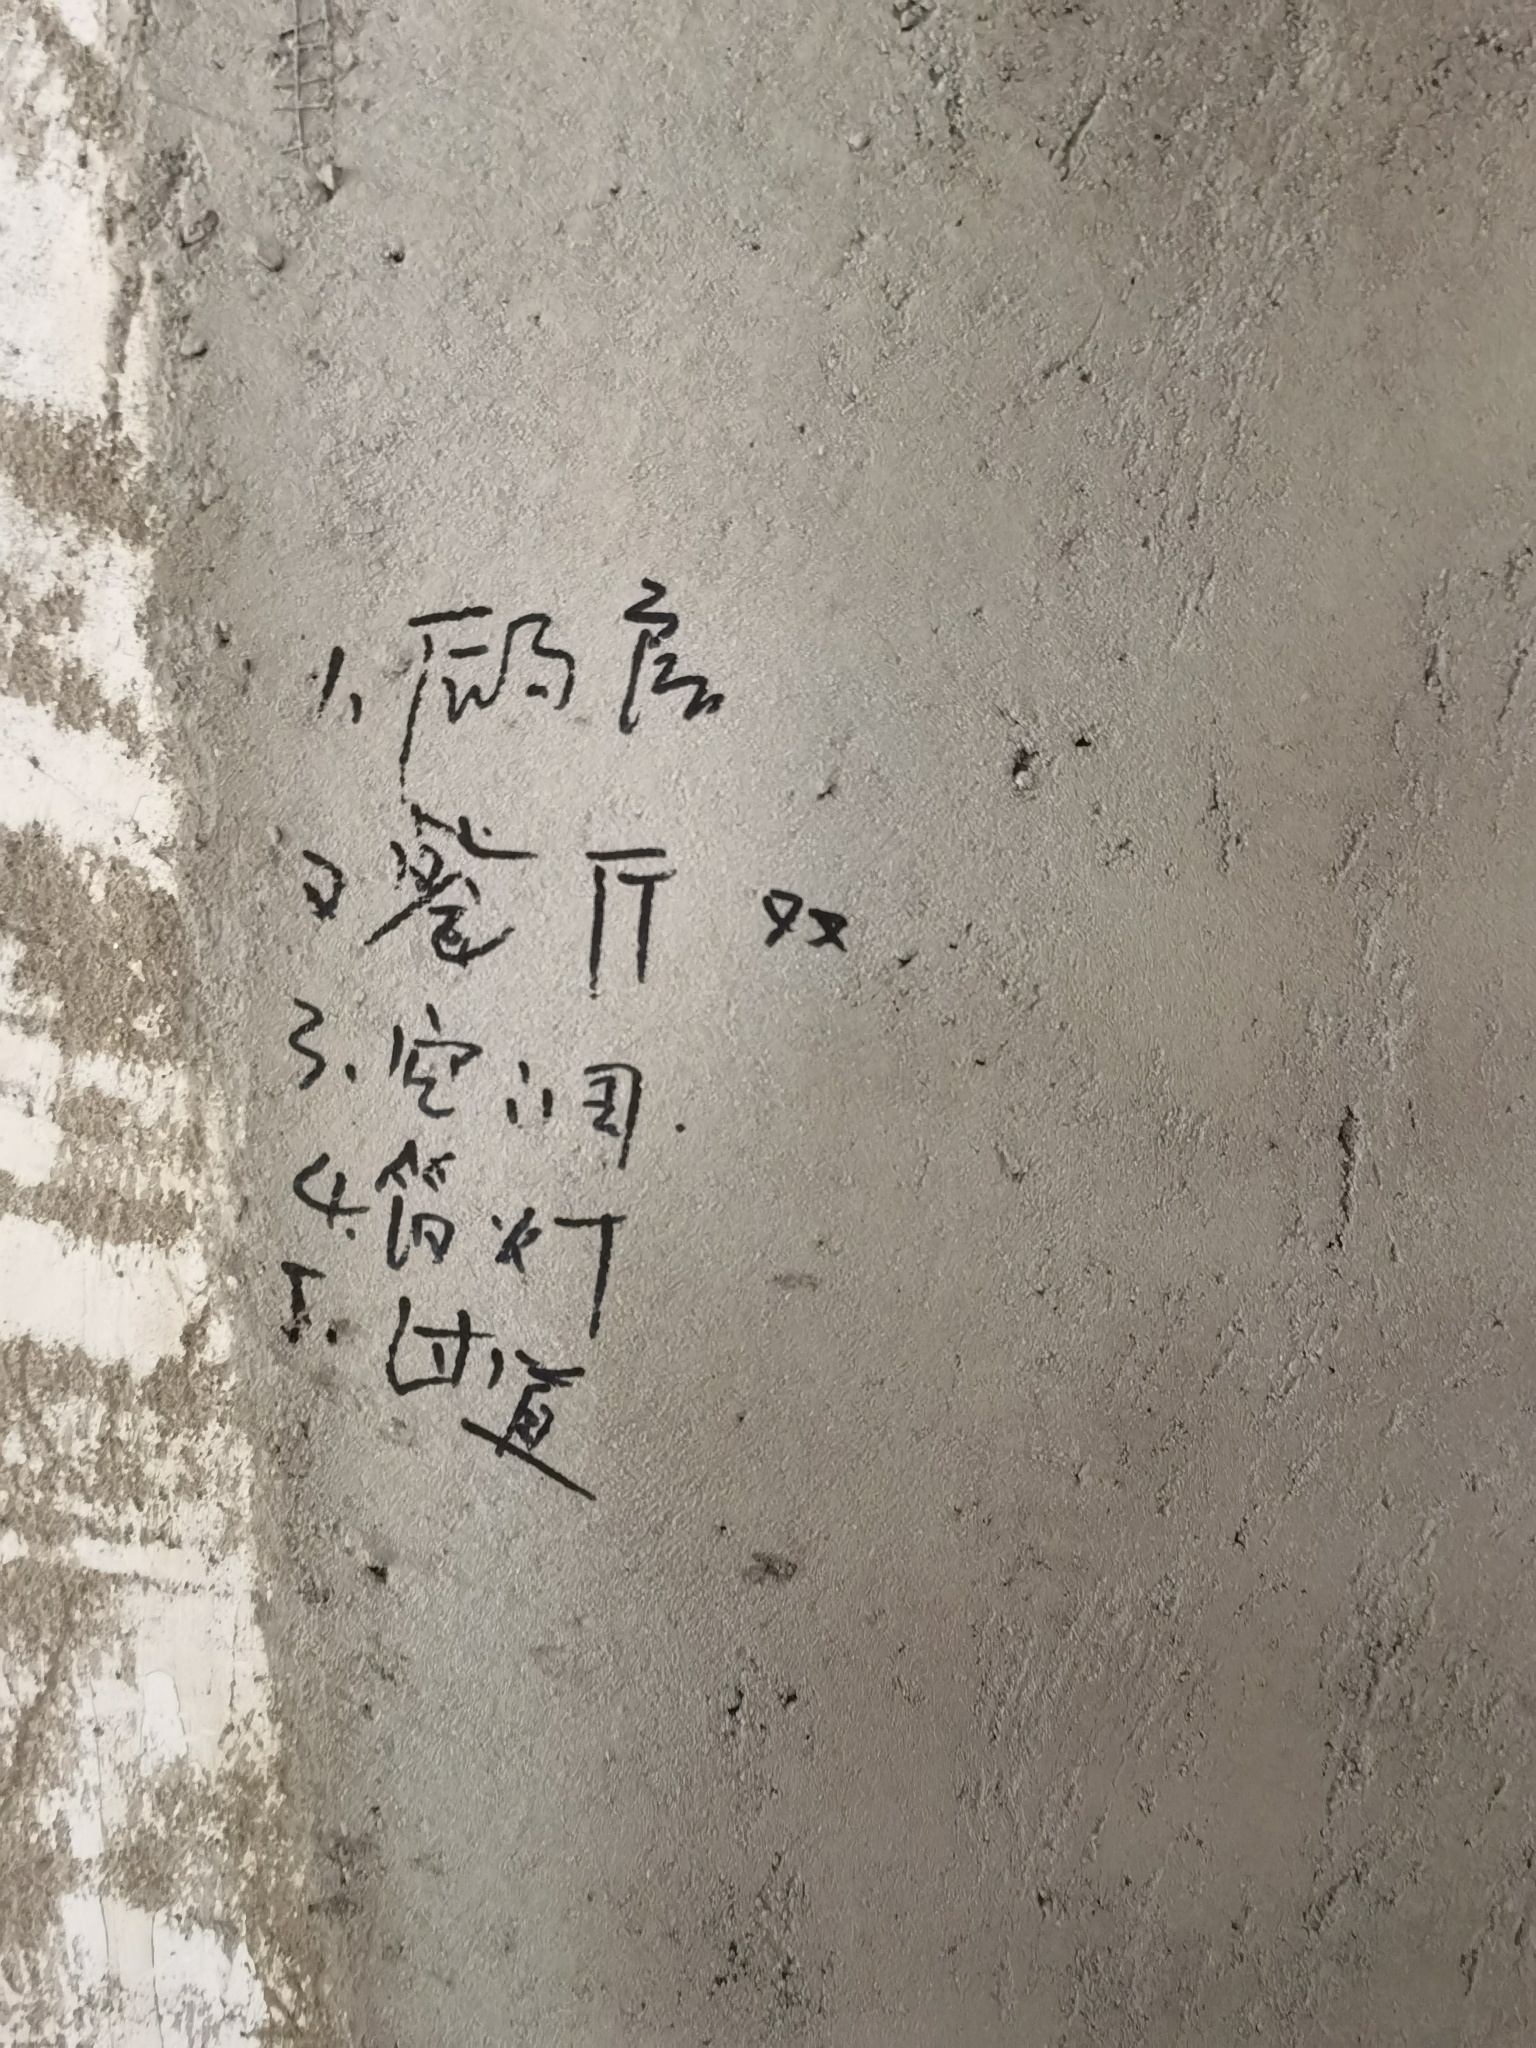 1、厨房
2 餐厅 双
3、空调.
4.筒灯
5.过道